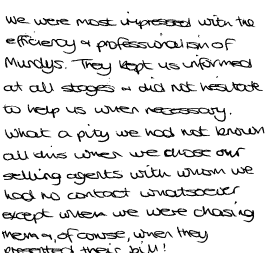 We were most impressed with the
efficiency & professionalism of
Mundys. They kept us informed
at all stages & did not hesitate
to help us when necessary.
What a pity we had not known
all this when we chose our
selling agents with whom we
had no contact whatsoever
except when we were chasing
them &, of course, when they
presented their bill!